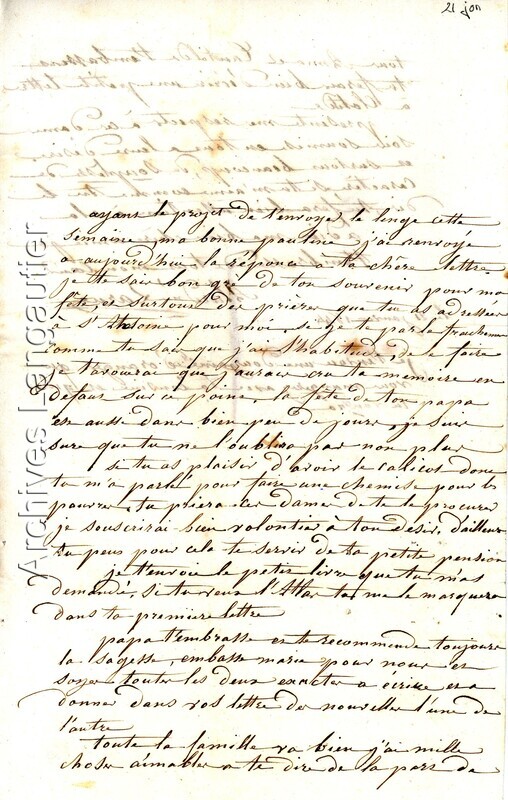 21 jon
ayant le projet de t'envoyé le linge cette
semaine, ma bonne pauline, j'ai renvoyé
a aujourd'hui la réponce à ta chère lettre
je te sais bon gré de ton souvenir pour ma
fête, et surtout des prières que tu as adressées
à St Antoine pour moi, si je te parle franchement
comme tu sais que j'ai l'habitude de le faire
je t'avourai que j'aurais cru ta mémoire en
defaut sur ce point. la fête de ton papa
est aussi dans bien peu de jours, je suis
sure que tu ne l'oublira pas non plus
si tu as plaisir d'avoir le calicot dont
tu m'a parlé pour faire une chemise pour les
pauvres, tu priera ces dames de te le procurer
je souscrirai bien volontier a ton desir. d'ailleurs
tu peus pour cela te servir de ta petite pension
je t'envoie le petit livre que tu m'as
demandé, si tu veux l'Atlas tu me le marquera
dans ta premiere lettre
papa t'embrasse et te recommende toujours
la sagesse, embasse marie pour nous et
soyez toutes les deux exactes a écrire et a
donner dans vos lettre des nouvelles l'une de
l'autre
toute la famille va bien j'ai mille
choses aimables a te dire de la part de
Archives Langautier